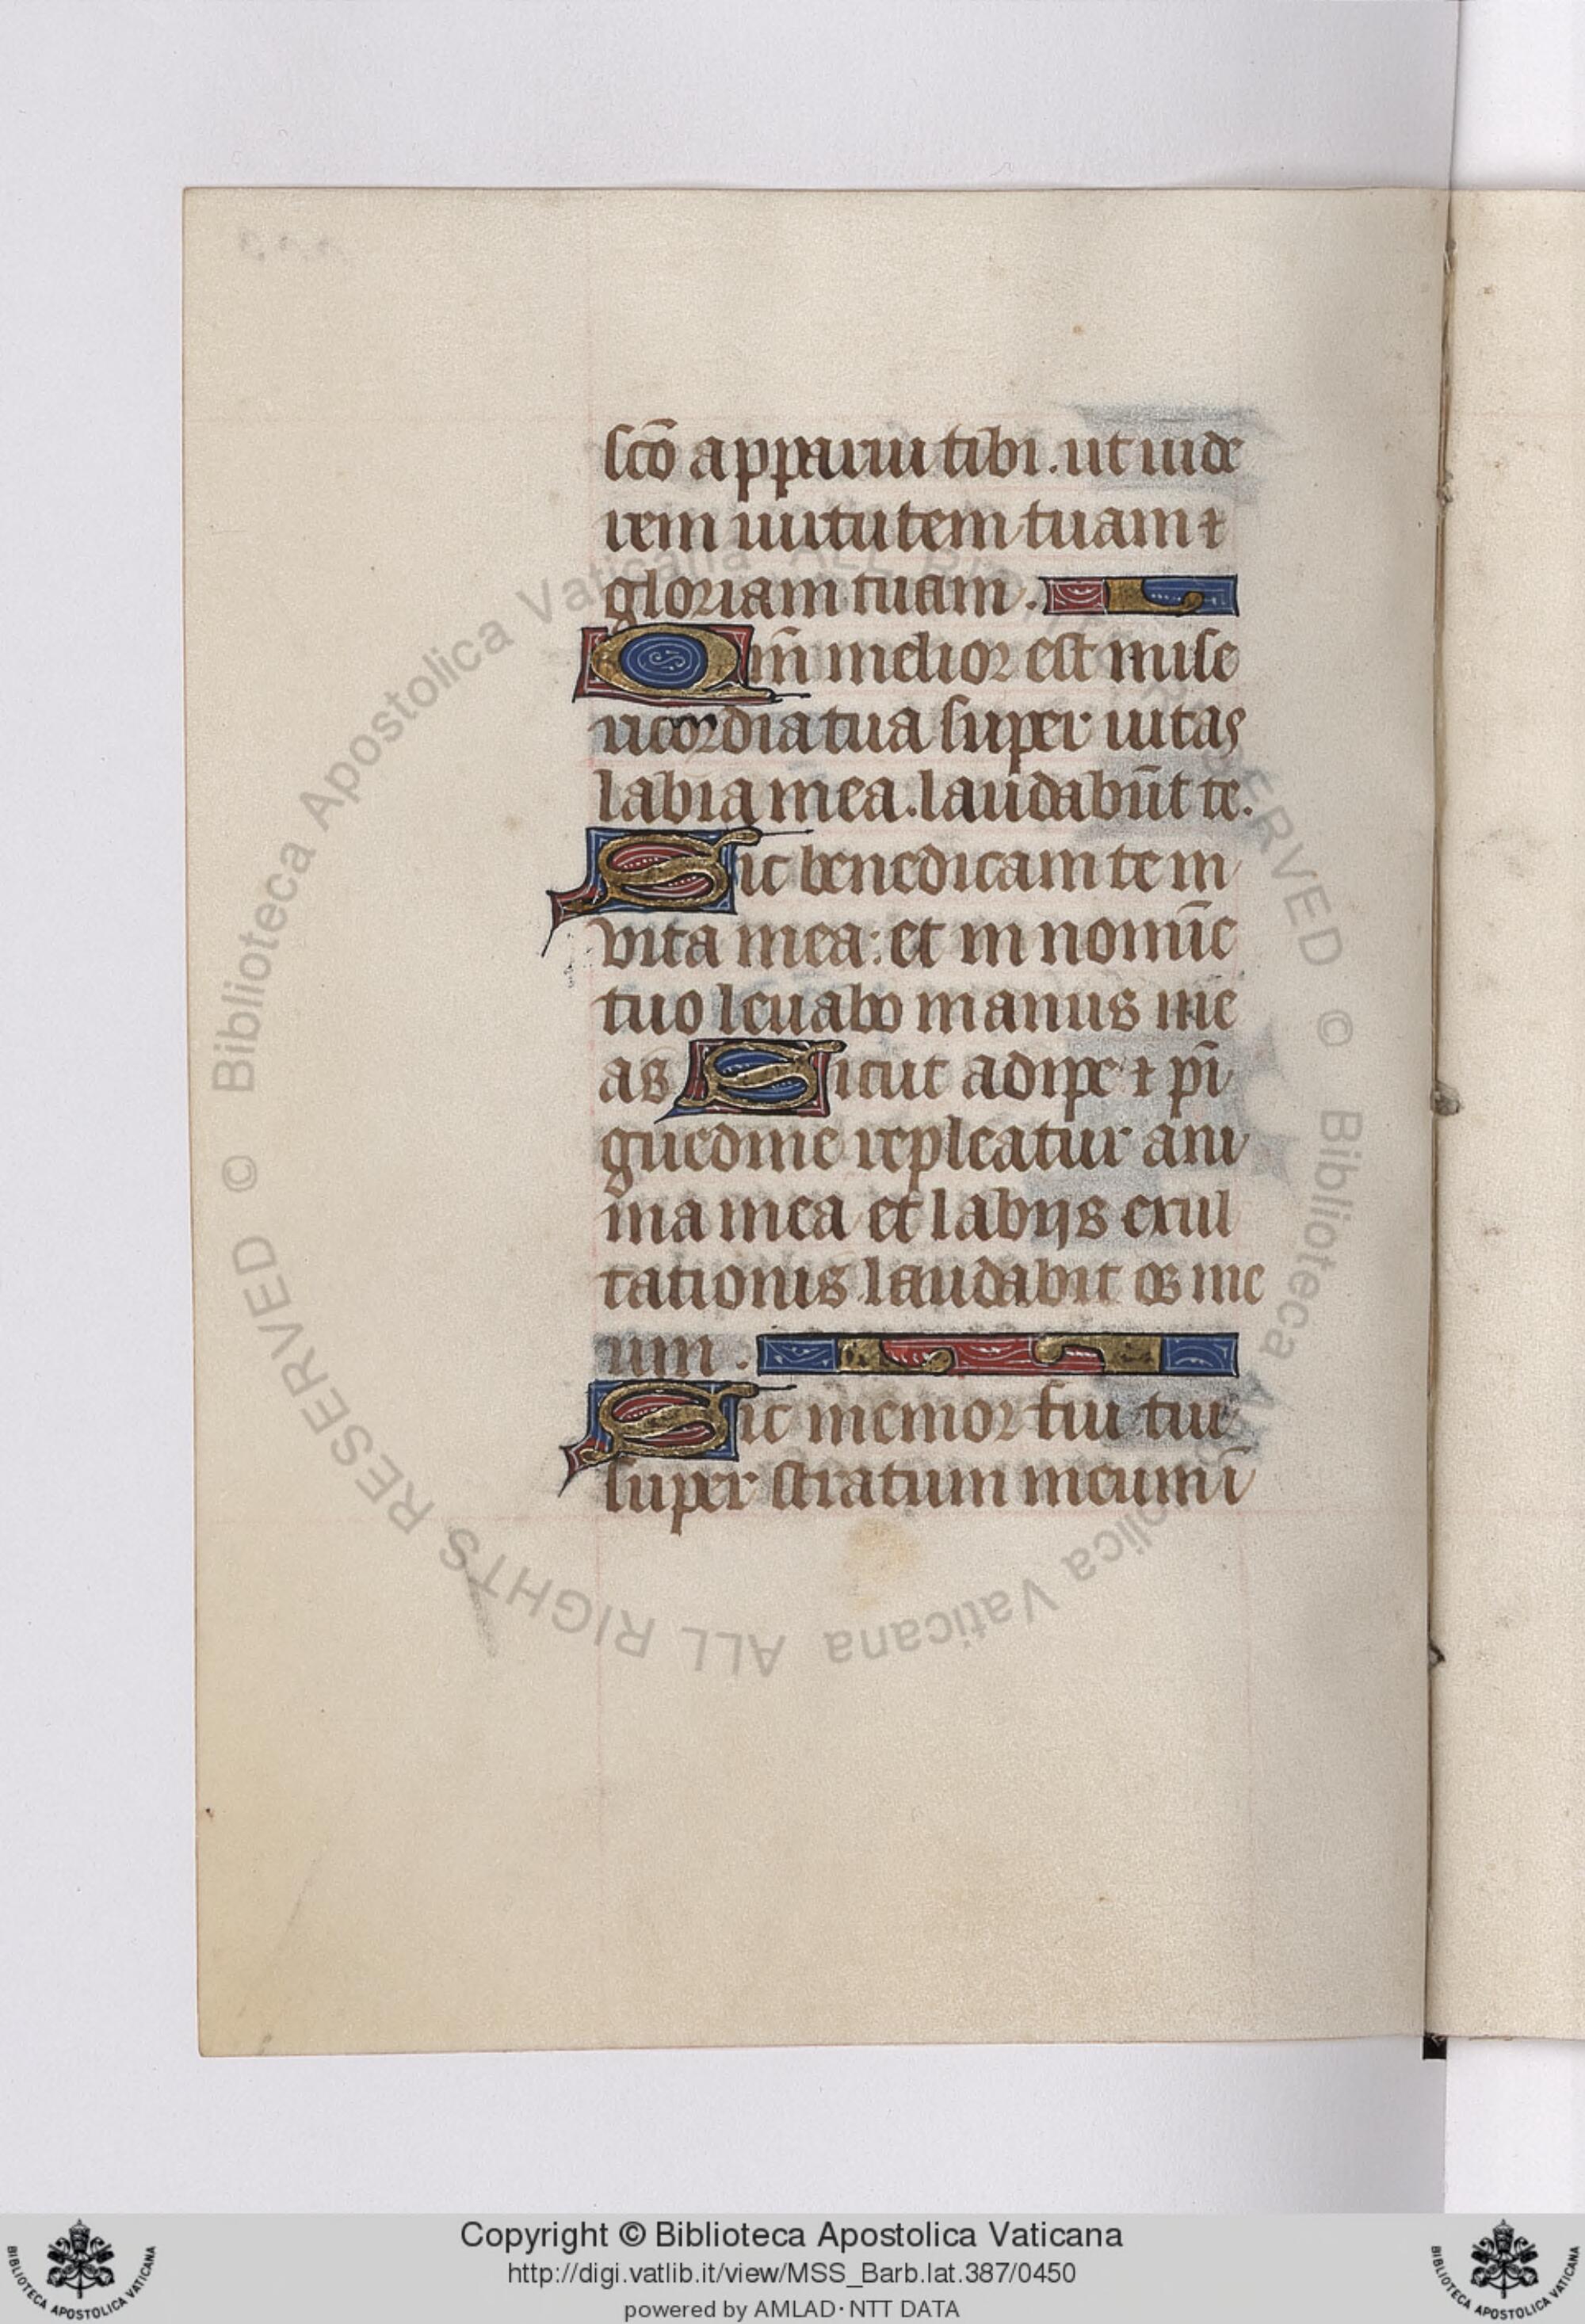 scō apparui tibi. ut uide
rem uirtutem tuam ⁊
gloriam tuam.
Qm̄ melior est mise
ricordia tua super uitas
labia mea. laudabūt te.
Sic benedicam te in
vita mea: et in nomīe
tuo leuabo manus me
as Sicut adipe ⁊ pī
guedine repleatur ani
ma mea et labijs exul
tationis laudabit os me
um.
Sic memor fui tui
super stratum meum ī
© Biblioteca Apostolica Vaticana ALL RIGHTS RESERVED © Biblioteca Apostolica Vaticana ALL RIGHTS RESERVED
Copyright © Biblioteca Apostolica Vaticana
http://digi.vatlib.it/view/MSS_Barb.lat.387/0450
powered by AMLAD·NTT DATA
BIBLIOTECA APOSTOLICA VATICANA
BIBLIOTECA APOSTOLICA VATICANA